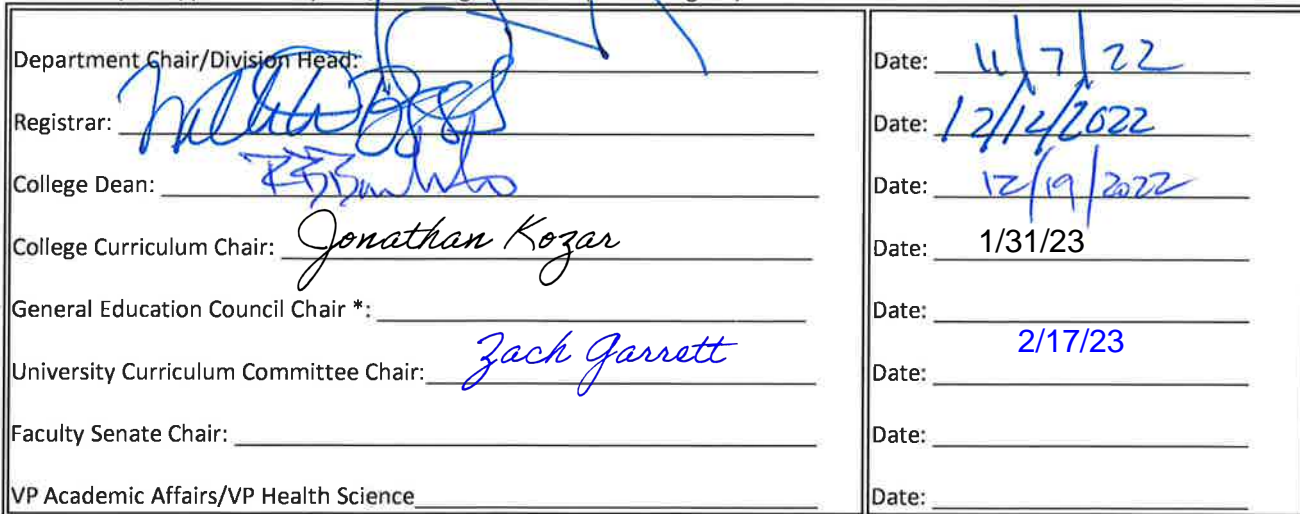 Department Chair/Division Head: Date: 11/7/22
Registrar: Date: 12/14/2022
College Dean: Date: 12/19/2022
College Curriculum Chair: Jonathan Kozar Date: 1/31/23
General Education Council Chair *: Date:
University Curriculum Committee Chair: Zach Garrett Date: 2/17/23
Faculty Senate Chair: Date:
VP Academic Affairs/VP Health Science Date: